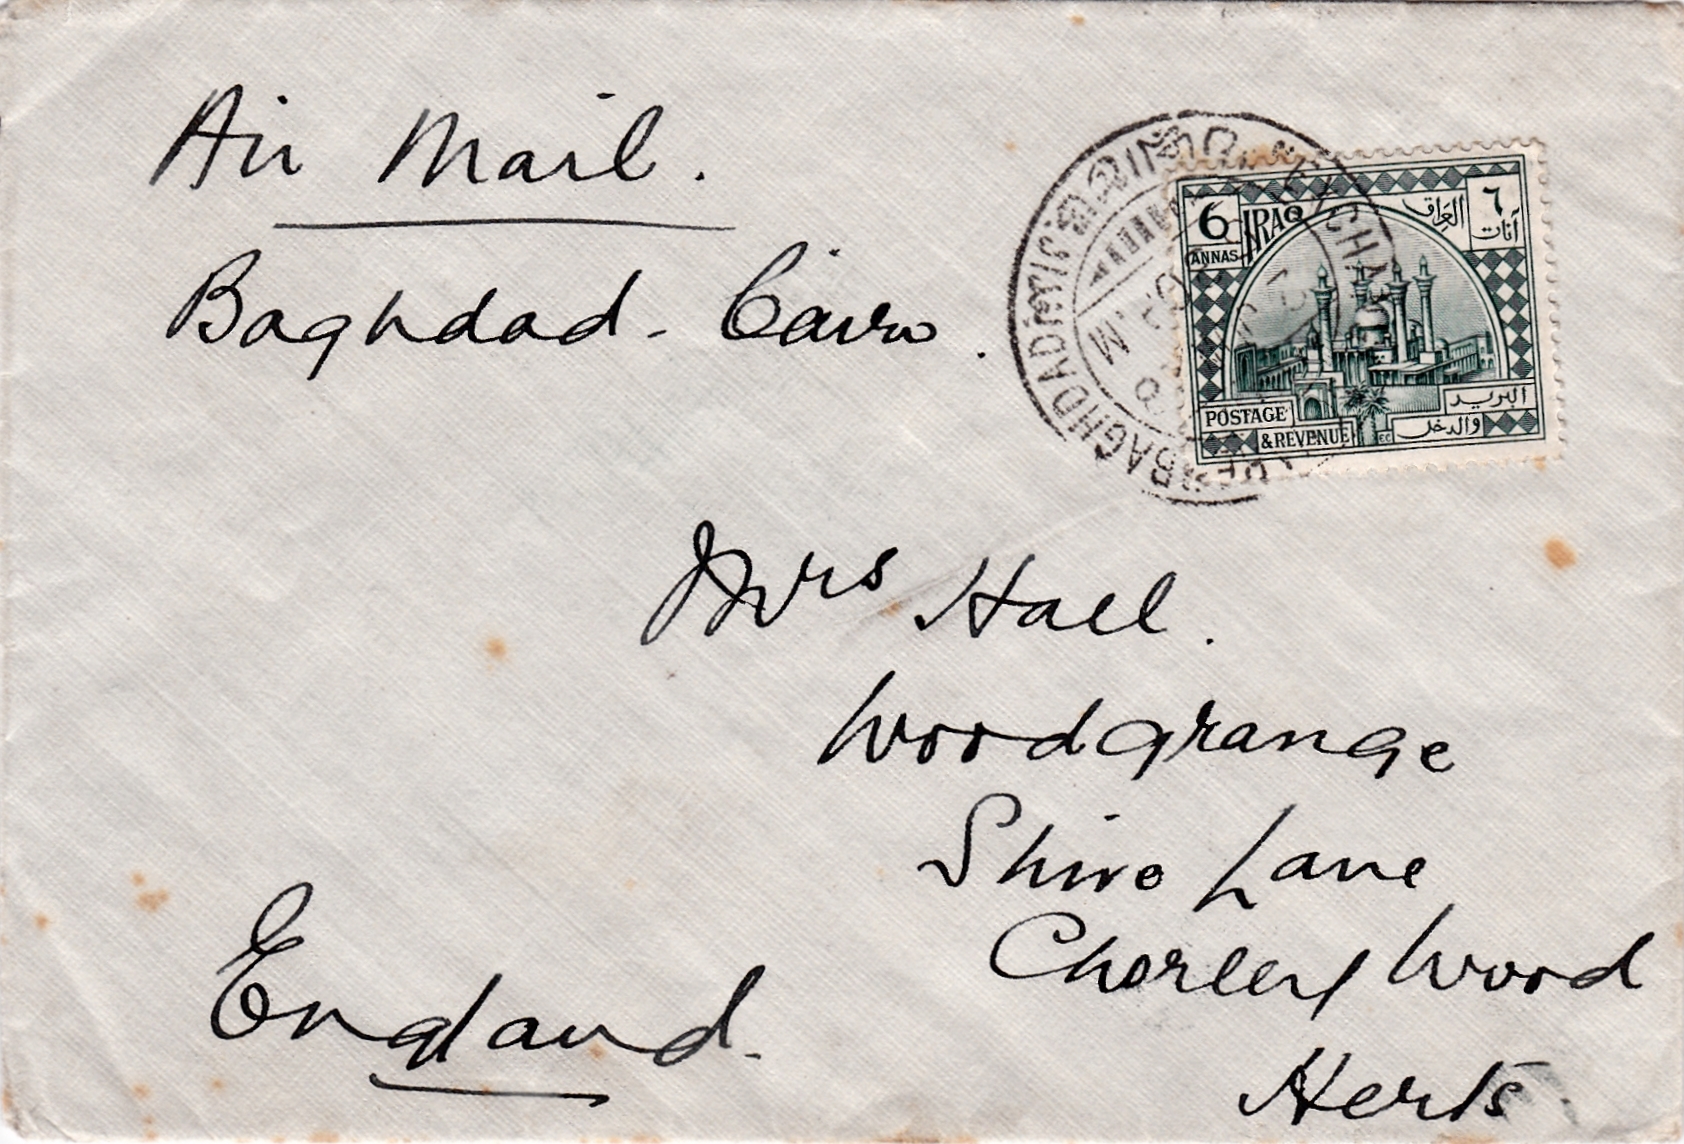 Air Mail.
Baghdad - Cairo.
BAGHDAD
6
ANNAS
IRAQ
العراق
٦
آنات
POSTAGE
& REVENUE
البريد
والدخل
Mrs Hall.
Woodgrange
Shire Lane
Chorley Wood
Herts
England.